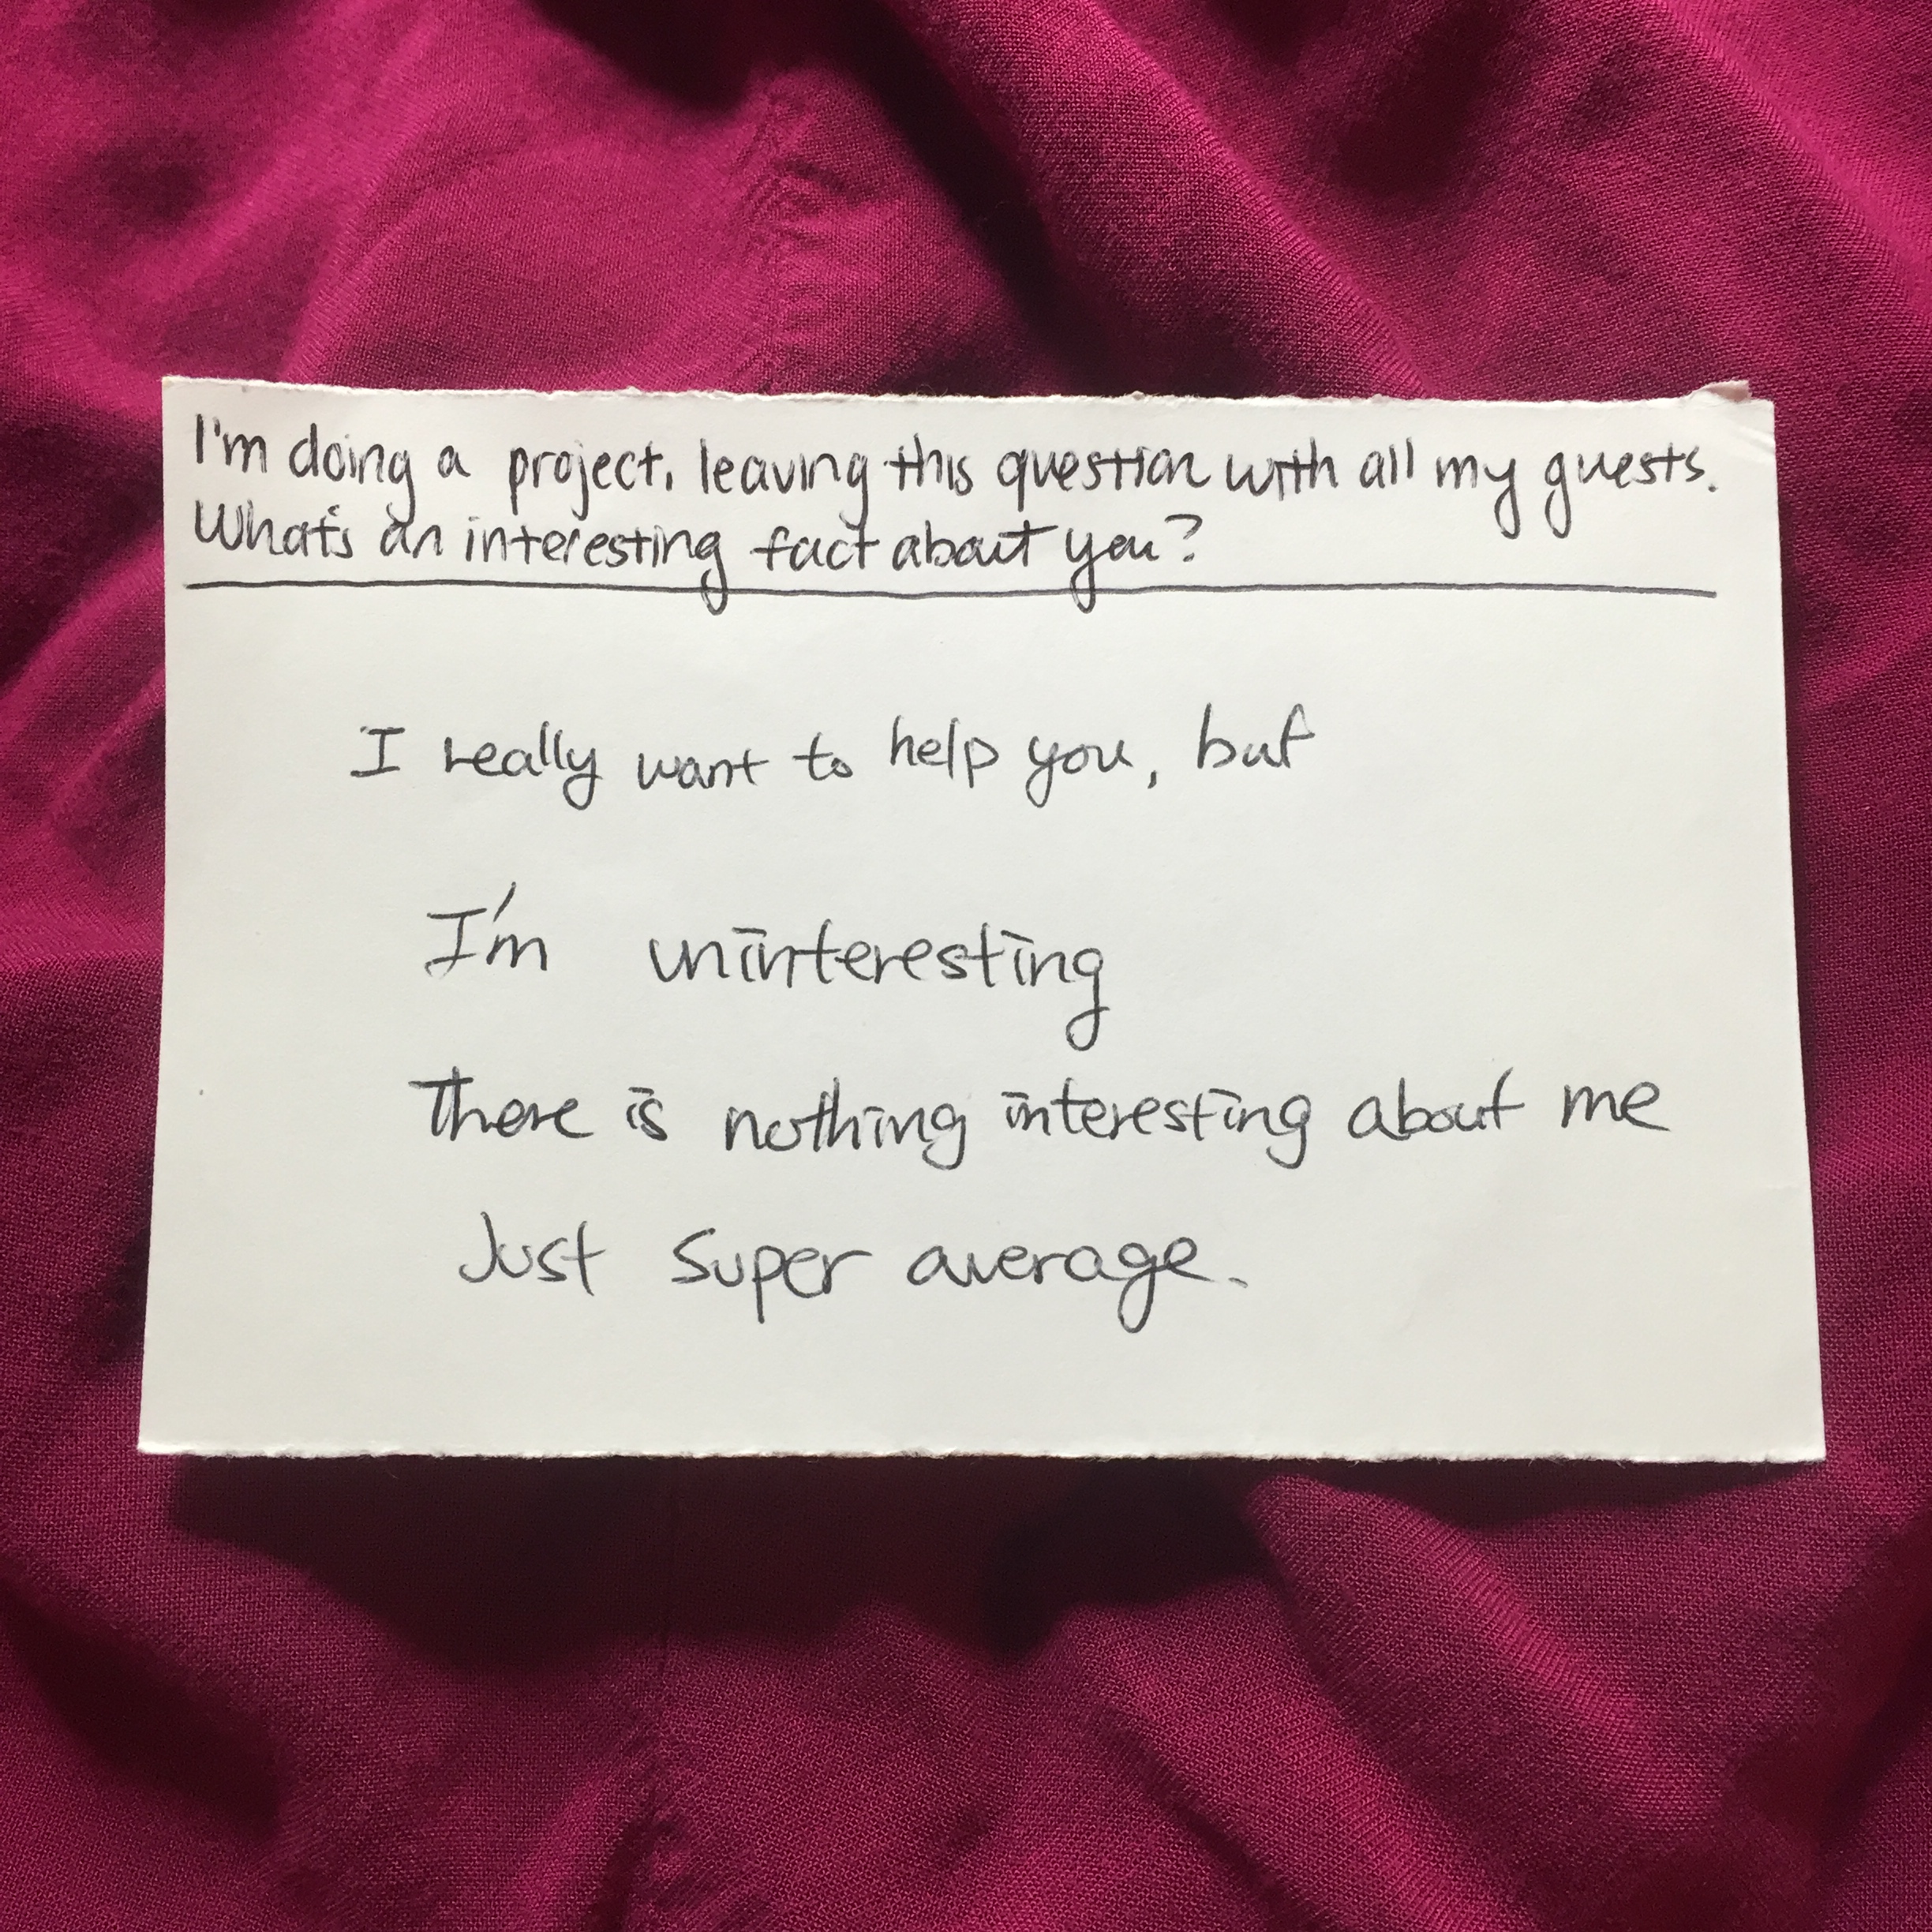 I'm doing a project, leaving this question with all my guests.
What's an interesting fact about you?
I really want to help you, but
I'm uninteresting
There is nothing interesting about me
Just super average.